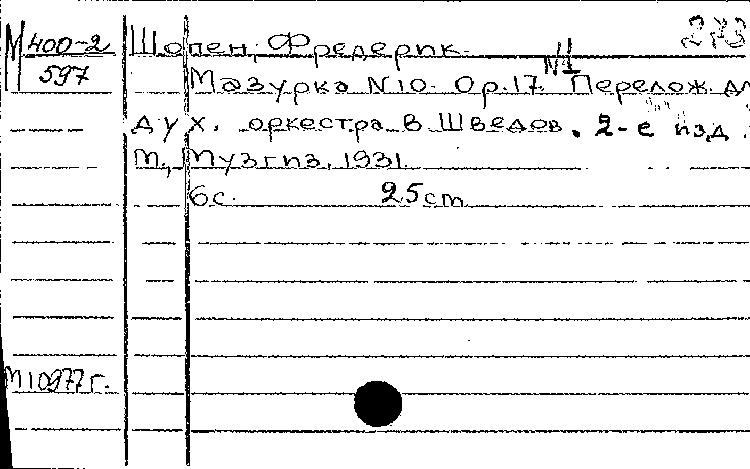 М 400-2 Шопен, Фредерик. 273
597 Мазурка N10. Op.17. N1 Перелож. дл
дух. оркестра В Шведов. 2-е изд.
М., Музгиз, 1931.
6с. 25cm
М10977г.